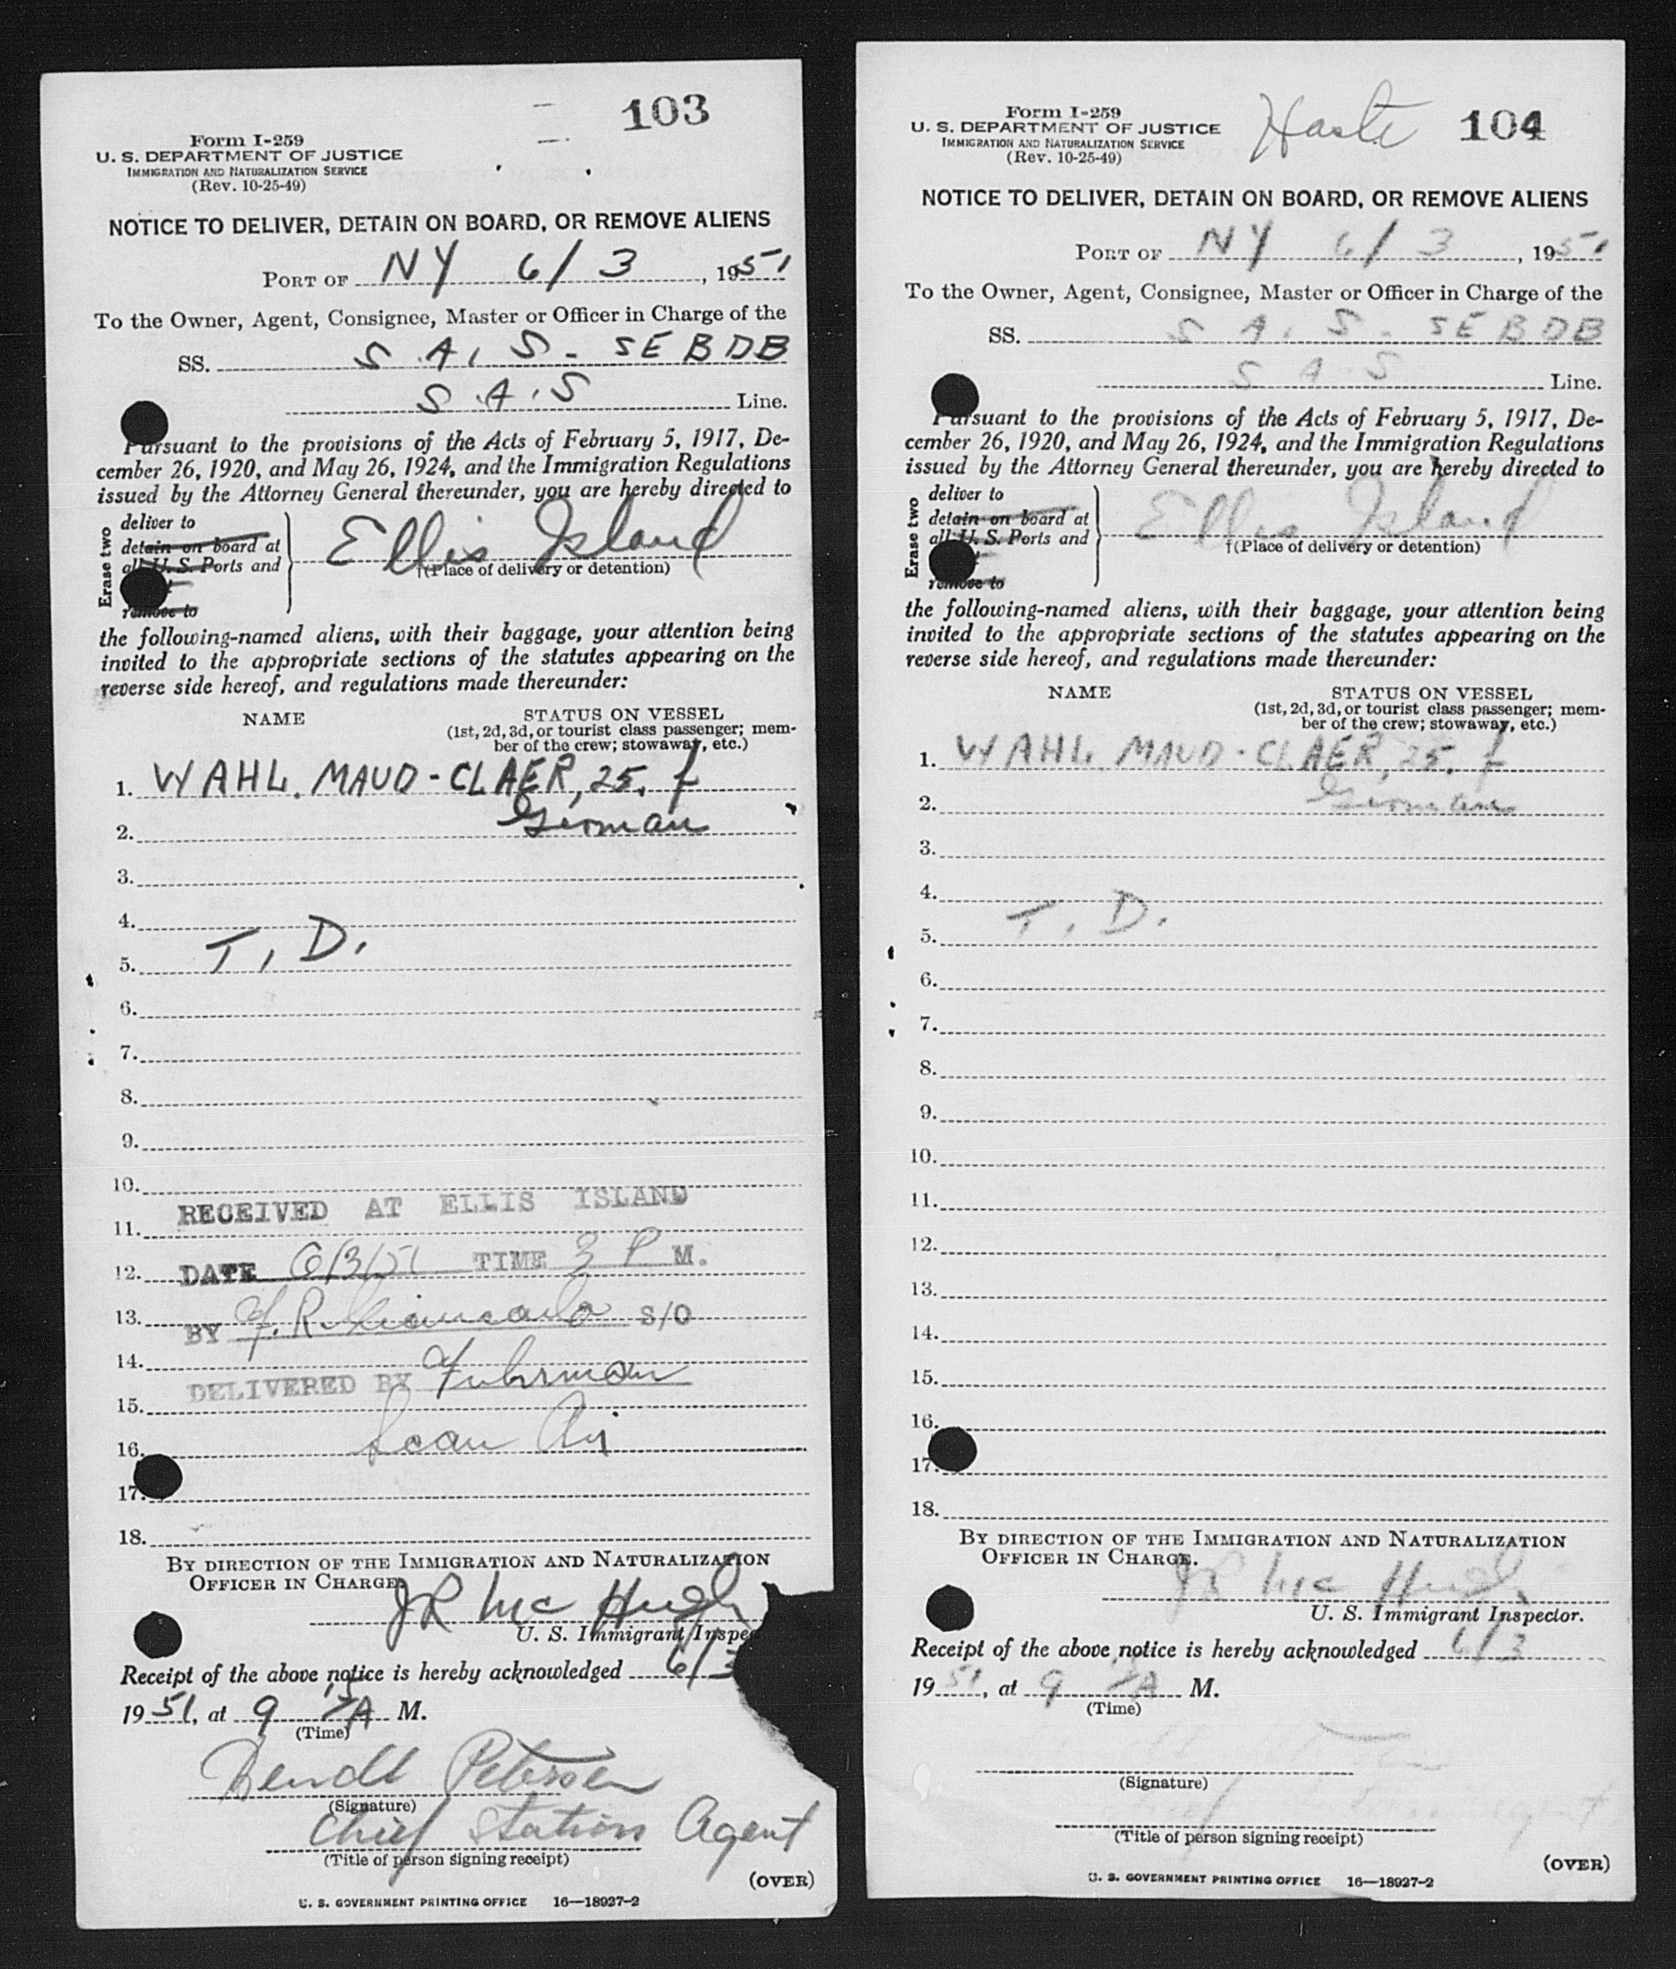 103
Form I-259
U. S. DEPARTMENT OF JUSTICE
IMMIGRATION AND NATURALIZATION SERVICE
(Rev. 10-25-49)
NOTICE TO DELIVER, DETAIN ON BOARD, OR REMOVE ALIENS
PORT OF NY 6/3, 1951
To the Owner, Agent, Consignee, Master or Officer in Charge of the
SS. S.A.S - SEBDB
S.A.S Line.
Pursuant to the provisions of the Acts of February 5, 1917, De-
cember 26, 1920, and May 26, 1924, and the Immigration Regulations
issued by the Attorney General thereunder, you are hereby directed to
Erase two
deliver to
detain on board at
all U. S. Ports and
remove to
Ellis Island
†(Place of delivery or detention)
the following-named aliens, with their baggage, your attention being
invited to the appropriate sections of the statutes appearing on the
reverse side hereof, and regulations made thereunder:
NAME
STATUS ON VESSEL
(1st, 2d, 3d, or tourist class passenger; mem-
ber of the crew; stowaway, etc.)
1. WAHL. MAUD-CLAER, 25. f
2. German
3.
4.
5. T. D.
6.
7.
8.
9.
10.
RECEIVED AT ELLIS ISLAND
11.
12. DATE 6/3/51 TIME 3 P M.
13.
BY F. R. S/O
14.
DELIVERED BY Fuhrman
15.
16. Scan Air
17.
18.
BY DIRECTION OF THE IMMIGRATION AND NATURALIZATION
OFFICER IN CHARGE.
JR McHugh
U. S. Immigrant Inspec
Receipt of the above notice is hereby acknowledged 6/3
1951, at 9 15/A M.
(Time)
Bendt Petersen
(Signature)
Chief Station Agent
(Title of person signing receipt)
(OVER)
U. S. GOVERNMENT PRINTING OFFICE 16—18927-2
Haste 104
Form I-259
U. S. DEPARTMENT OF JUSTICE
IMMIGRATION AND NATURALIZATION SERVICE
(Rev. 10-25-49)
NOTICE TO DELIVER, DETAIN ON BOARD, OR REMOVE ALIENS
PORT OF NY 6/3, 1951
To the Owner, Agent, Consignee, Master or Officer in Charge of the
SS. S.A.S - SEBDB
S A S Line.
Pursuant to the provisions of the Acts of February 5, 1917, De-
cember 26, 1920, and May 26, 1924, and the Immigration Regulations
issued by the Attorney General thereunder, you are hereby directed to
Erase two
deliver to
detain on board at
all U. S. Ports and
remove to
Ellis Island
†(Place of delivery or detention)
the following-named aliens, with their baggage, your attention being
invited to the appropriate sections of the statutes appearing on the
reverse side hereof, and regulations made thereunder:
NAME
STATUS ON VESSEL
(1st, 2d, 3d, or tourist class passenger; mem-
ber of the crew; stowaway, etc.)
1. WAHL. MAUD-CLAER, 25. f
2. German
3.
4.
5. T. D.
6.
7.
8.
9.
10.
11.
12.
13.
14.
15.
16.
17.
18.
BY DIRECTION OF THE IMMIGRATION AND NATURALIZATION
OFFICER IN CHARGE.
JR McHugh
U. S. Immigrant Inspector.
Receipt of the above notice is hereby acknowledged 6/3
1951, at 9 15/A M.
(Time)
(Signature)
(Title of person signing receipt)
(OVER)
U. S. GOVERNMENT PRINTING OFFICE 16—18927-2